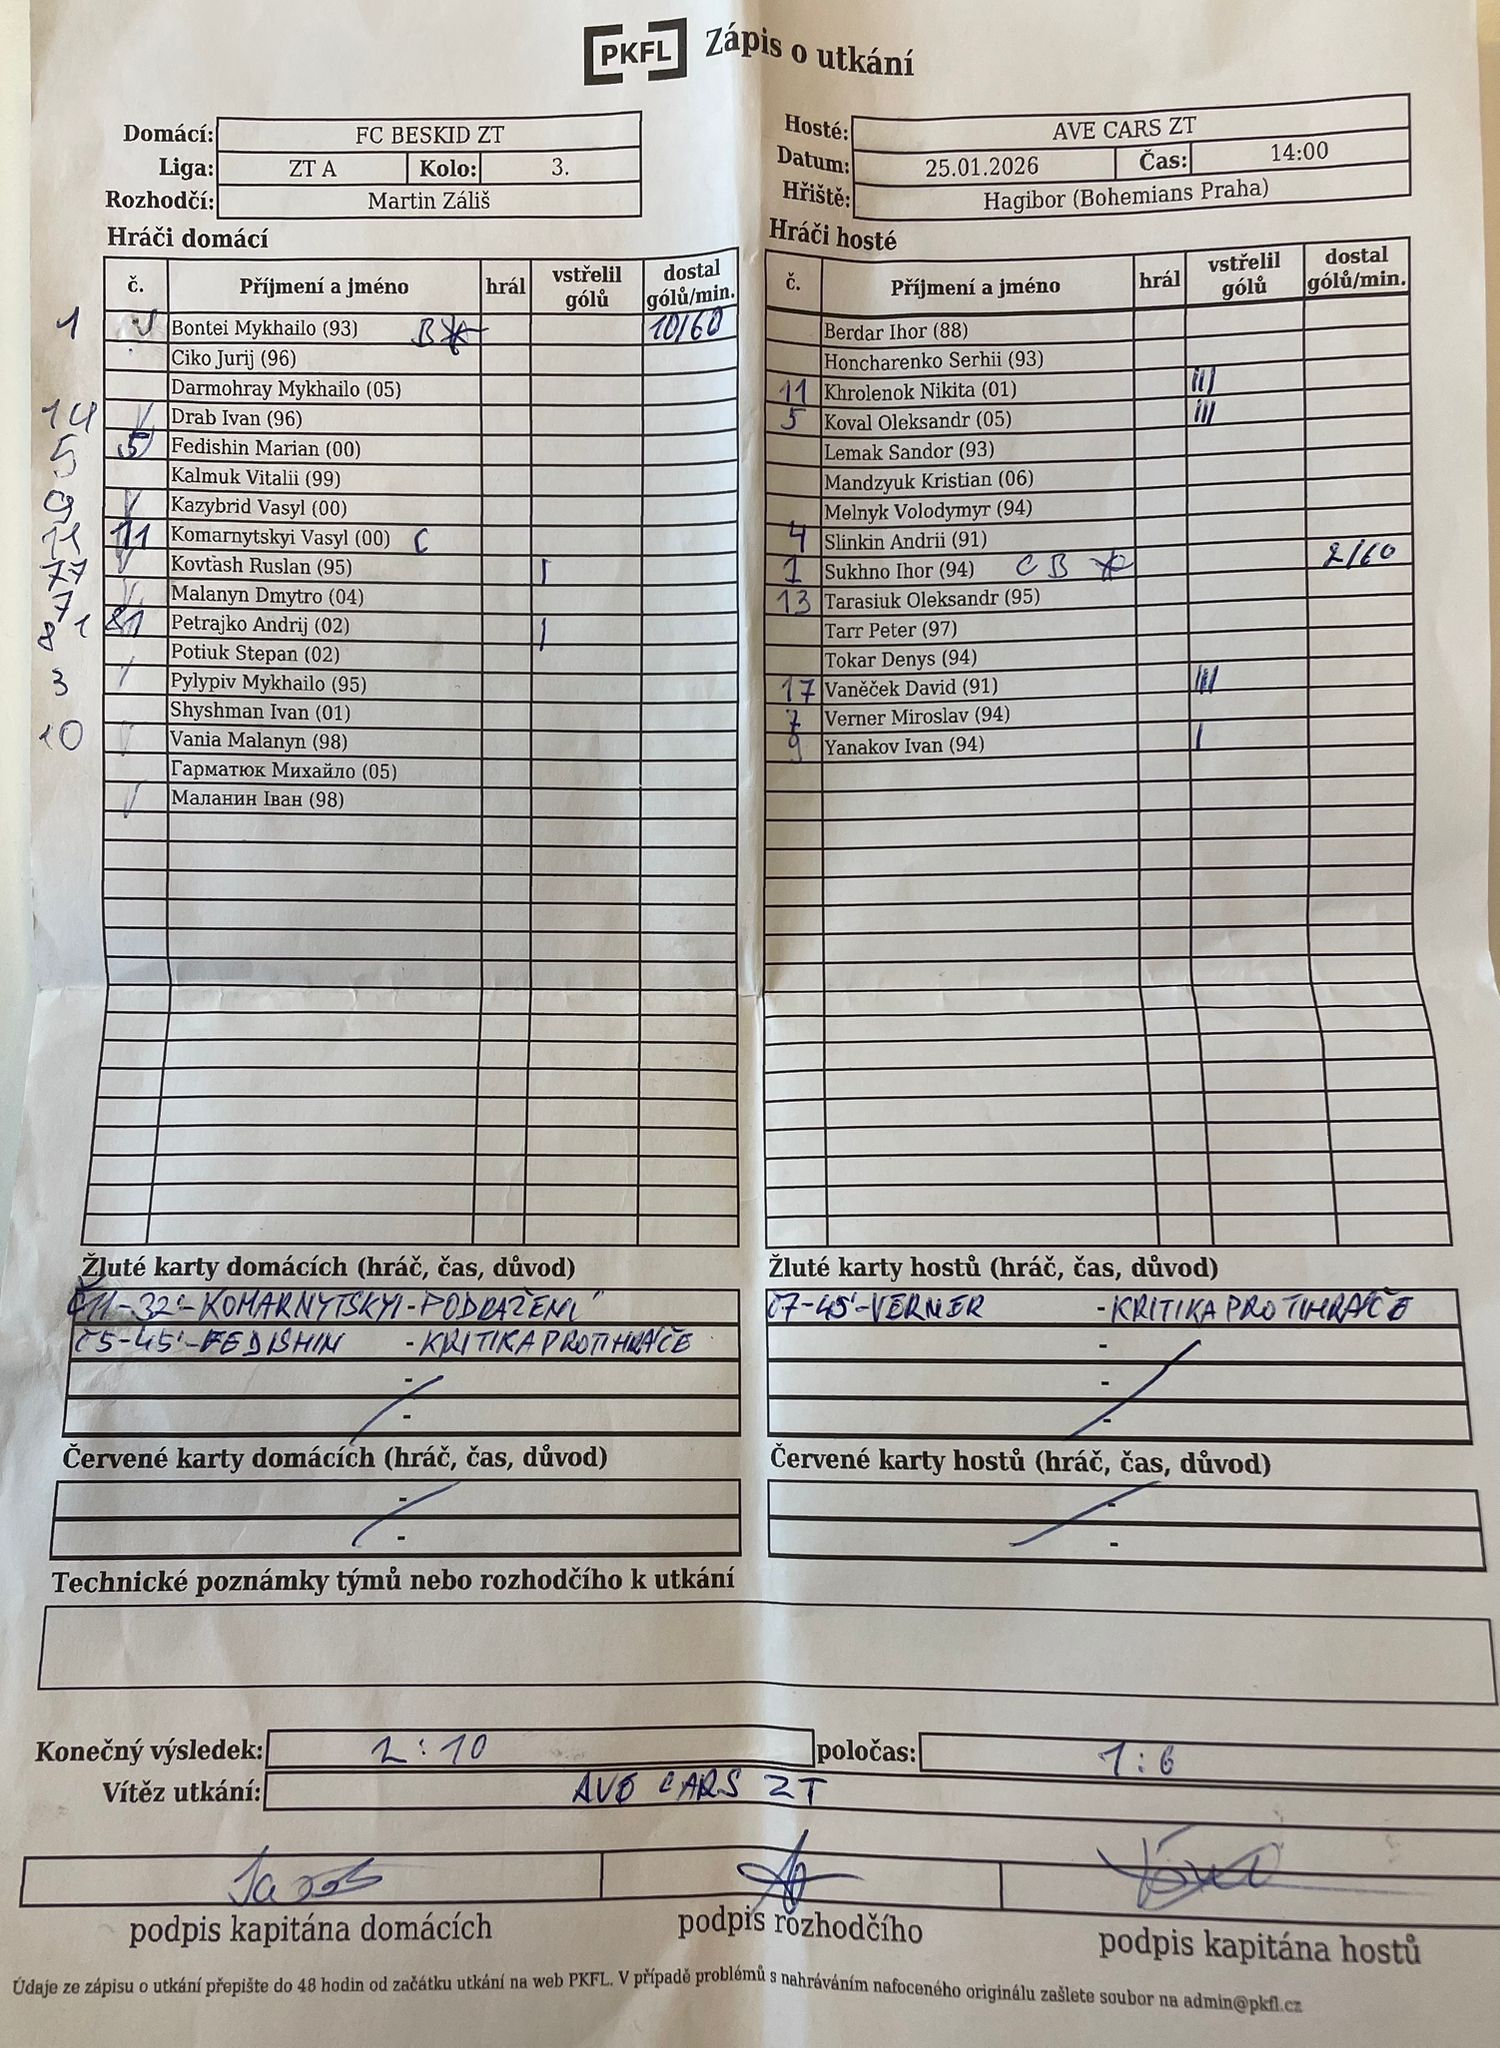 PKFL Zápis o utkání
Domácí: FC BESKID ZT
Liga: ZT A Kolo: 3.
Rozhodčí: Martin Záliš
Hosté: AVE CARS ZT
Datum: 25.01.2026 Čas: 14:00
Hřiště: Hagibor (Bohemians Praha)
Hráči domácí
č. Příjmení a jméno hrál vstřelil gólů dostal gólů/min.
1 Bontei Mykhailo (93) B 10/60
Ciko Jurij (96)
Darmohray Mykhailo (05)
14 Drab Ivan (96)
5 5 Fedishin Marian (00)
Kalmuk Vitalii (99)
9 Kazybrid Vasyl (00)
11 11 Komarnytskyi Vasyl (00) C
77 Kovtash Ruslan (95) I
7 Malanyn Dmytro (04)
81 81 Petrajko Andrij (02) I
Potiuk Stepan (02)
3 Pylypiv Mykhailo (95)
Shyshman Ivan (01)
10 Vania Malanyn (98)
Гарматюк Михайло (05)
Маланин Іван (98)
Hráči hosté
č. Příjmení a jméno hrál vstřelil gólů dostal gólů/min.
Berdar Ihor (88)
Honcharenko Serhii (93)
11 Khrolenok Nikita (01) III
5 Koval Oleksandr (05) III
Lemak Sandor (93)
Mandzyuk Kristian (06)
Melnyk Volodymyr (94)
4 Slinkin Andrii (91)
1 Sukhno Ihor (94) C B 2/60
13 Tarasiuk Oleksandr (95)
Tarr Peter (97)
Tokar Denys (94)
17 Vaněček David (91) III
7 Verner Miroslav (94)
9 Yanakov Ivan (94) I
Žluté karty domácích (hráč, čas, důvod)
Č11-32'-KOMARNYTSKYI-PODRAŽENÍ
Č5-45'-FEDISHIN -KRITIKA PROTIHRÁČE
-
-
Žluté karty hostů (hráč, čas, důvod)
Č7-45'-VERNER -KRITIKA PROTIHRÁČE
-
-
-
Červené karty domácích (hráč, čas, důvod)
-
-
Červené karty hostů (hráč, čas, důvod)
-
-
Technické poznámky týmů nebo rozhodčího k utkání
Konečný výsledek: 2:10 poločas: 1:6
Vítěz utkání: AVE CARS ZT
podpis kapitána domácích podpis rozhodčího podpis kapitána hostů
Údaje ze zápisu o utkání přepište do 48 hodin od začátku utkání na web PKFL. V případě problémů s nahráváním nafoceného originálu zašlete soubor na admin@pkfl.cz